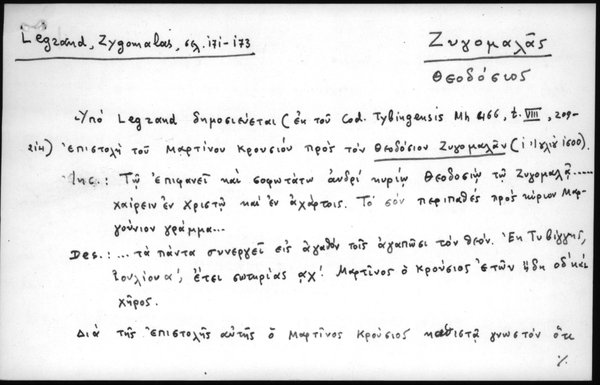 Legrand, Zygomalas, σελ. 171-173
Ζυγομαλᾶς
Θεοδόσιος
Ὑπό Legrand δημοσιεύεται (ἐκ τοῦ Cod. Tybingensis Mh 466, t. VIII, 209-
211) ἐπιστολή τοῦ Μαρτίνου Κρουσίου πρὸς τὸν Θεοδόσιον Ζυγομαλᾶν (1 Ἰουλίου 1600).
Inc.: Τῷ ἐπιφανεῖ καὶ σοφωτάτῳ ἀνδρί κυρίῳ Θεοδοσίῳ τῷ Ζυγομαλᾷ......
χαίρειν ἐν Χριστῷ καὶ ἐν ἀχάρτοις. Τό σόν περιπαθές πρὸς κύριον Μαρ-
γούνιον γράμμα...
Des.: ... τὰ πάντα συνεργεῖ εἰς ἀγαθόν τοῖς ἀγαπῶσι τὸν Θεόν. Ἐκ Τυβίγγης,
Ἰουλίου α', ἔτει σωτηρίας ͵αχ'. Μαρτῖνος ὁ Κρούσιος ἐτῶν ἤδη οδ' καὶ
χῆρος.
Διά τῆς ἐπιστολῆς αὐτῆς ὁ Μαρτῖνος Κρούσιος καθιστᾷ γνωστόν ὅτι
%